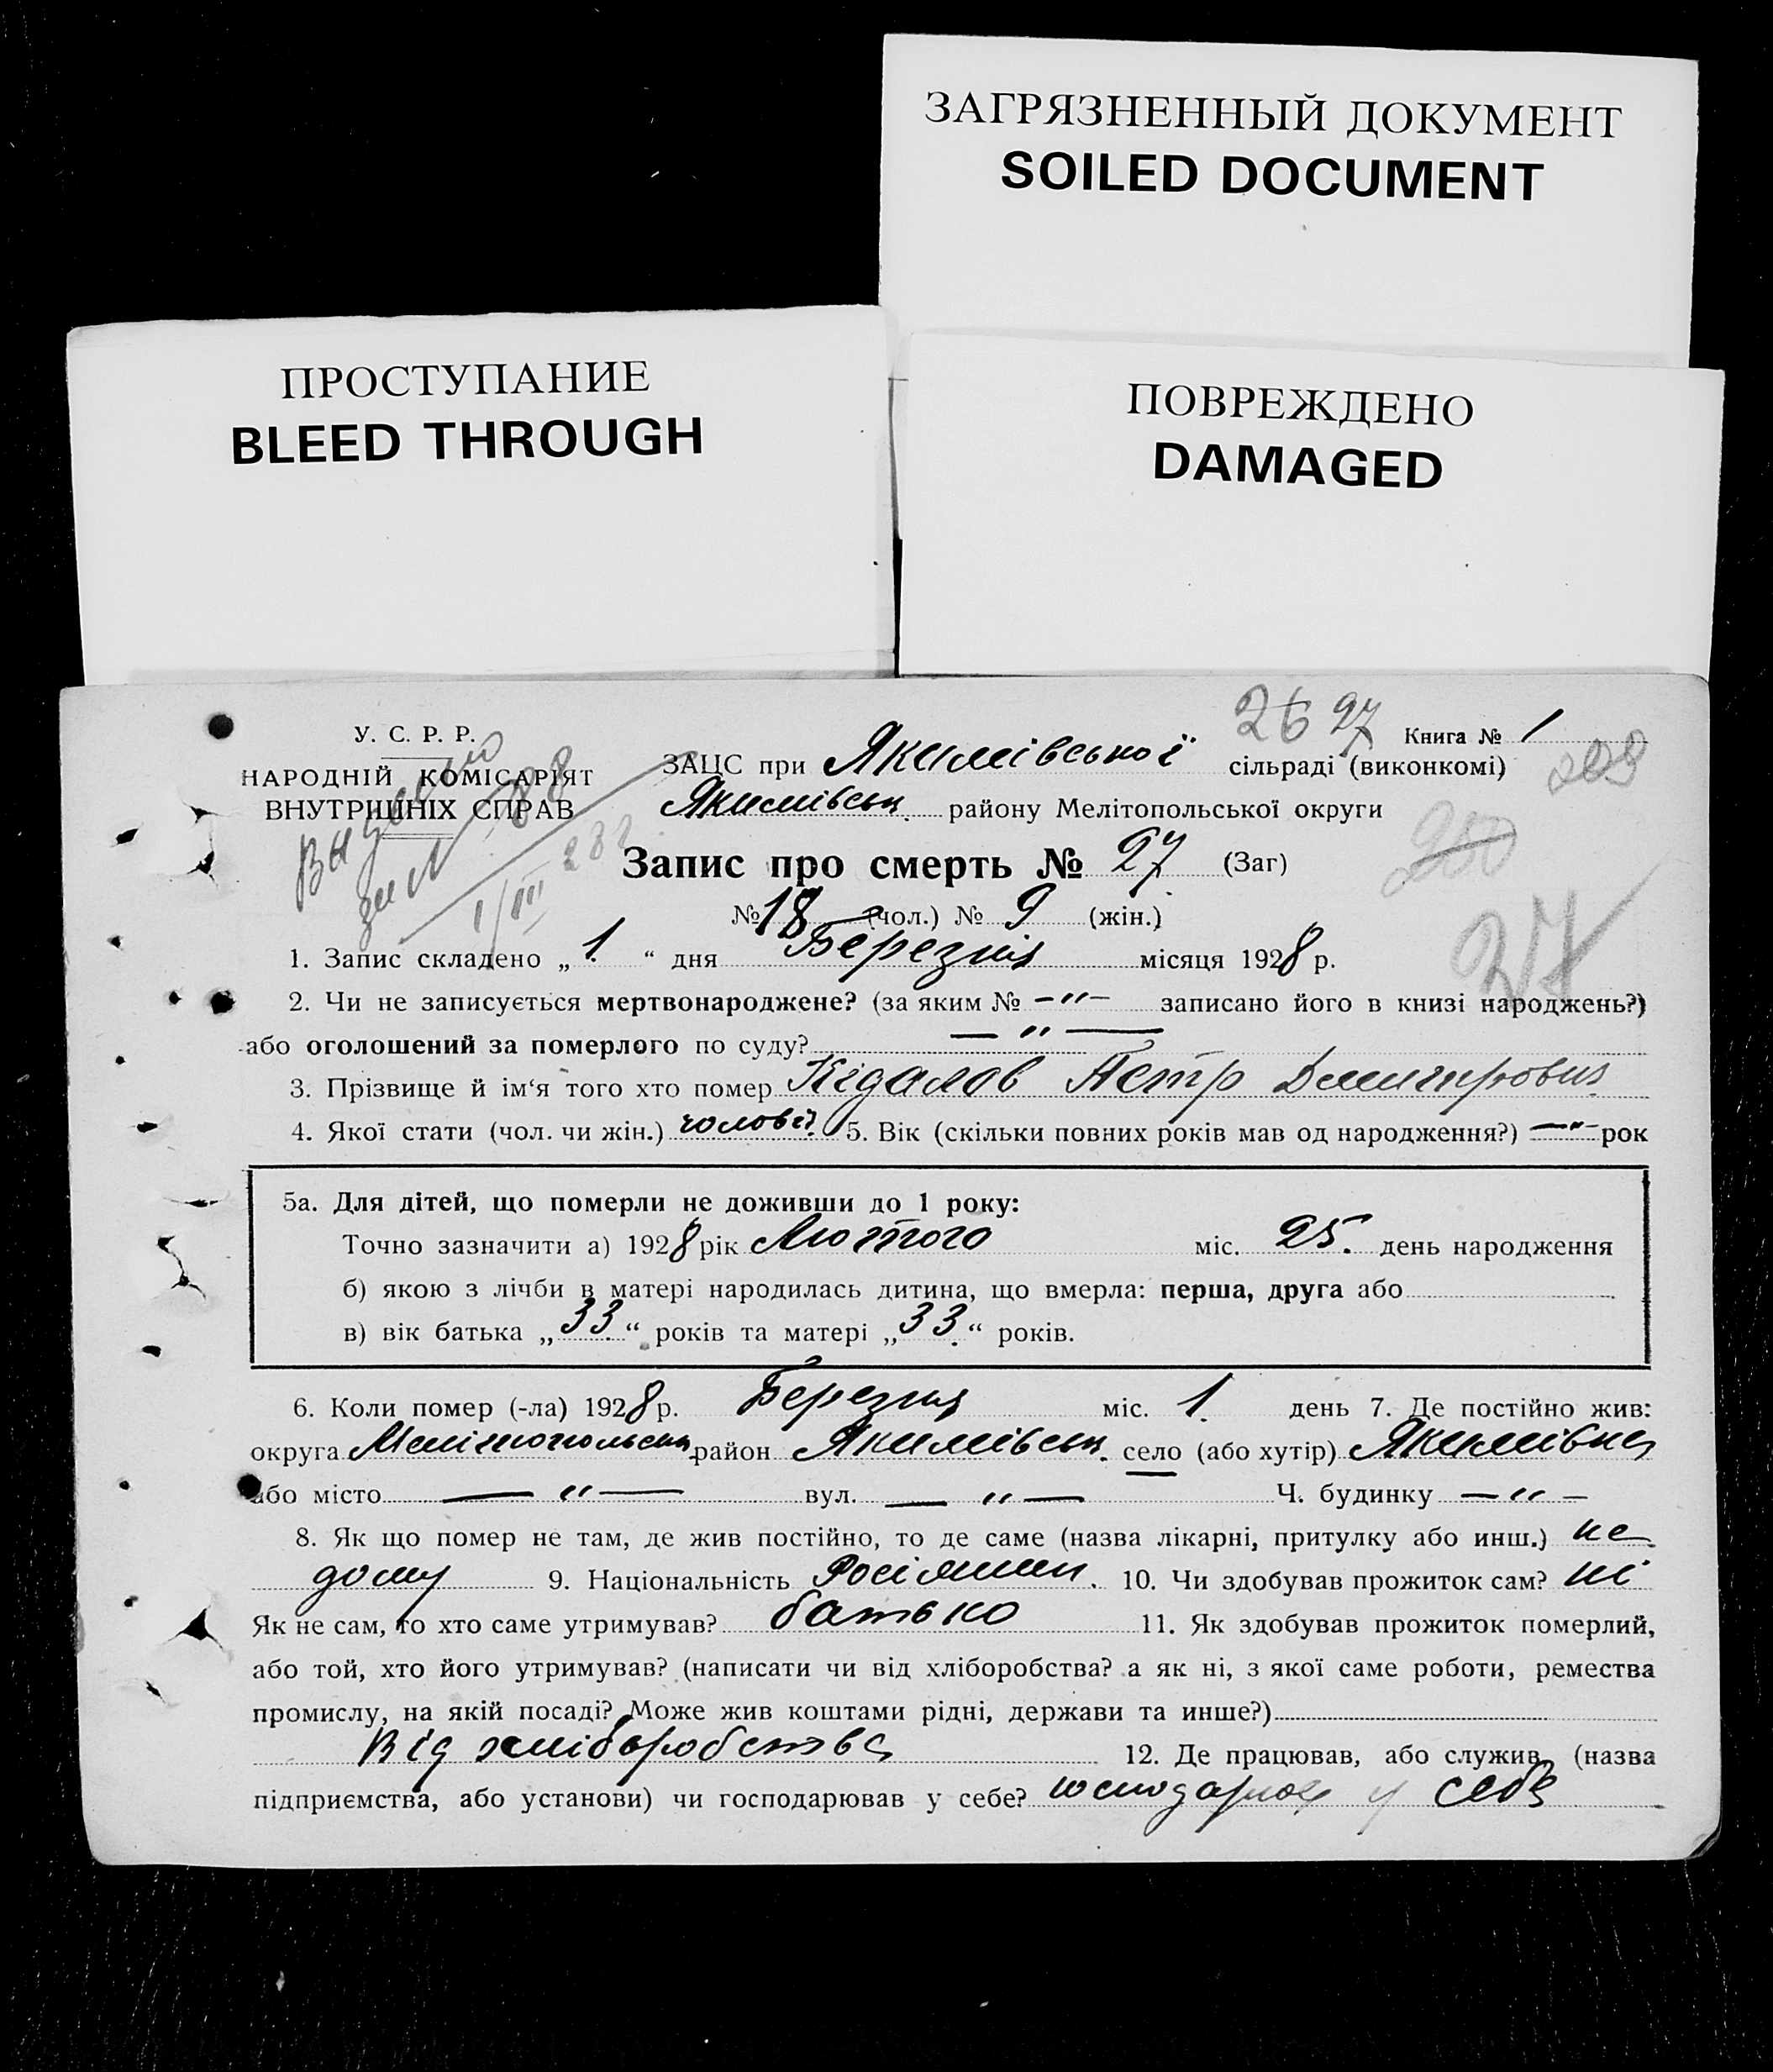 ЗАГРЯЗНЕННЫЙ ДОКУМЕНТ
SOILED DOCUMENT
ПРОСТУПАНИЕ
BLEED THROUGH
ПОВРЕЖДЕНО
DAMAGED
26 27
У. С. Р. Р.
Книга № 1
НАРОДНІЙ КОМІСАРІЯТ
ВНУТРІШНІХ СПРАВ
ЗАЦС при Якимівської сільраді (виконкомі)
209
Якимівськ. району Мелітопольської округи
200
Выдано
за № 88
1/III
Запис про смерть № 27 (Заг)
№ 18 (чол.) № 9 (жін.)
27
1. Запис складено „ 1. “ дня Березня місяця 1928 р.
2. Чи не записується мертвонароджене? (за яким № —"— записано його в книзі народжень?)
або оголошений за померлого по суду? — " —
3. Прізвище й ім‘я того хто помер Кідалов Петр Дмитрович
4. Якої стати (чол. чи жін.) чоловіч. 5. Вік (скільки повних років мав од народження?) —"— рок
5а. Для дітей, що померли не доживши до 1 року:
Точно зазначити а) 1928 рік Лютого міс. 25. день народження
б) якою з лічби в матері народилась дитина, що вмерла: перша, друга або
в) вік батька „ 33. “ років та матері „ 33. “ років.
6. Коли помер (-ла) 1928 р. Березня міс. 1. день 7. Де постійно жив:
округа Мелітопольськ. район Якимівськ. село (або хутір) Якимівка
або місто — " — вул. — " — Ч. будинку — " —
8. Як що помер не там, де жив постійно, то де саме (назва лікарні, притулку або инш.)
дому 9. Національність Росіянин. 10. Чи здобував прожиток сам? ні
Як не сам, то хто саме утримував? батько 11. Як здобував прожиток померлий,
або той, хто його утримував? (написати чи від хліборобства? а як ні, з якої саме роботи, ремества
промислу, на якій посаді? Може жив коштами рідні, держави та инше?)
Від хліборобства 12. Де працював, або служив, (назва
підприємства, або установи) чи господарював у себе? у себе